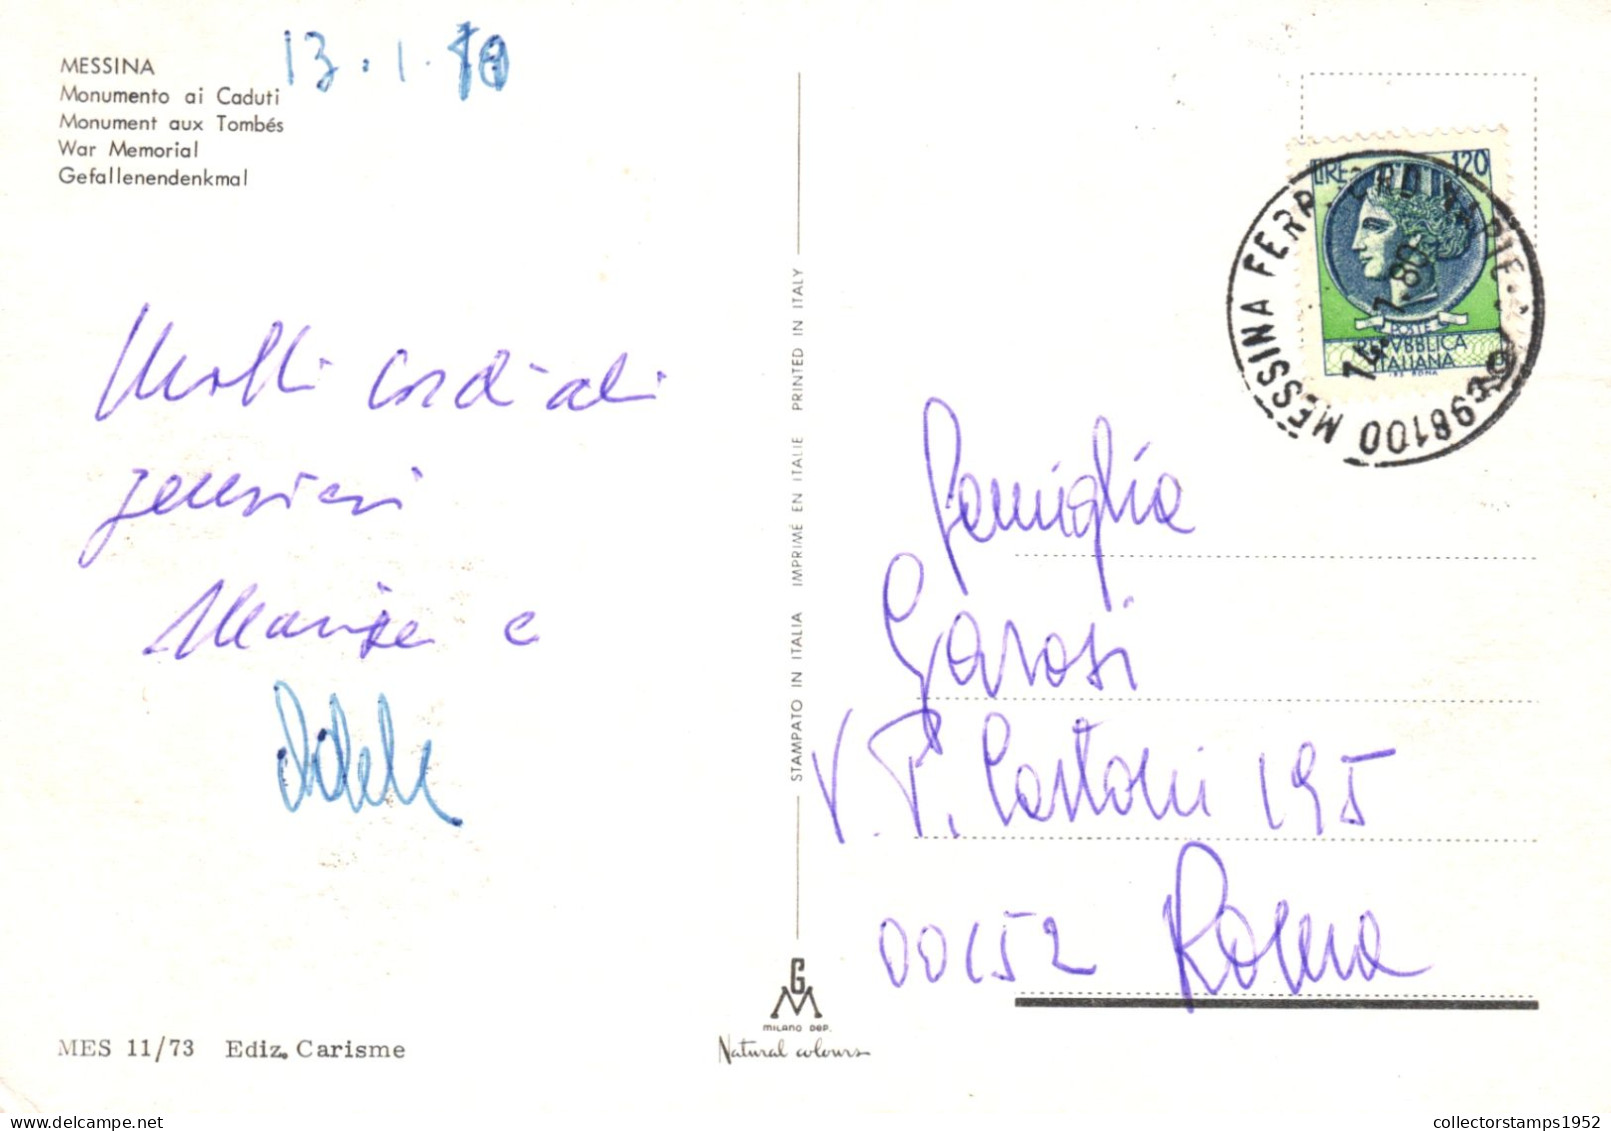 MESSINA
Monumento ai Caduti
Monument aux Tombés
War Memorial
Gefallenendenkmal
13.1.80
Molti cordiali
pensieri
Marisa e
Adele
STAMPATO IN ITALIA IMPRIMÉ EN ITALIE PRINTED IN ITALY
LIRE 120
POSTE
REPVBBLICA
ITALIANA
98100 MESSINA FERR. ORDINARIE
14.1.80
Famiglia
Garosi
V. P. Cartoni 195
00152 Roma
GM
MILANO DEP.
Natural colours
MES 11/73 Ediz. Carisme
collectorstamps1952